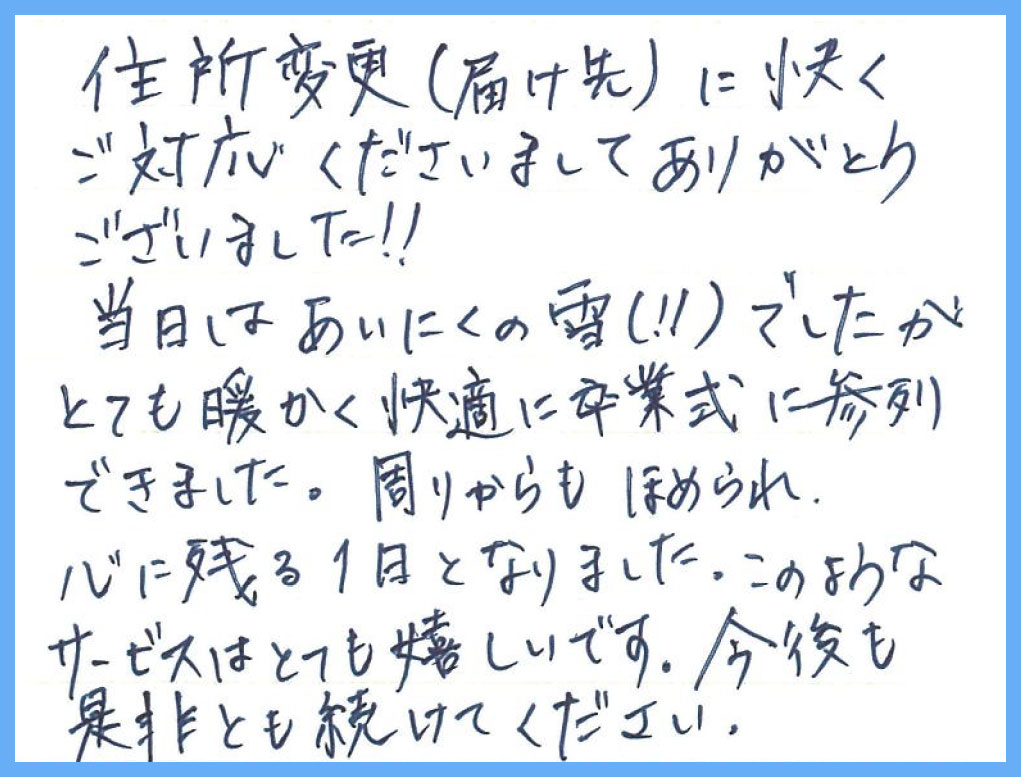 住所変更(届け先)に快く
ご対応くださいましてありがとう
ございました!!
当日はあいにくの雪(!!)でしたが
とても暖かく快適に卒業式に参列
できました。周りからもほめられ、
心に残る1日となりました。このような
サービスはとても嬉しいです。今後も
是非とも続けてください。